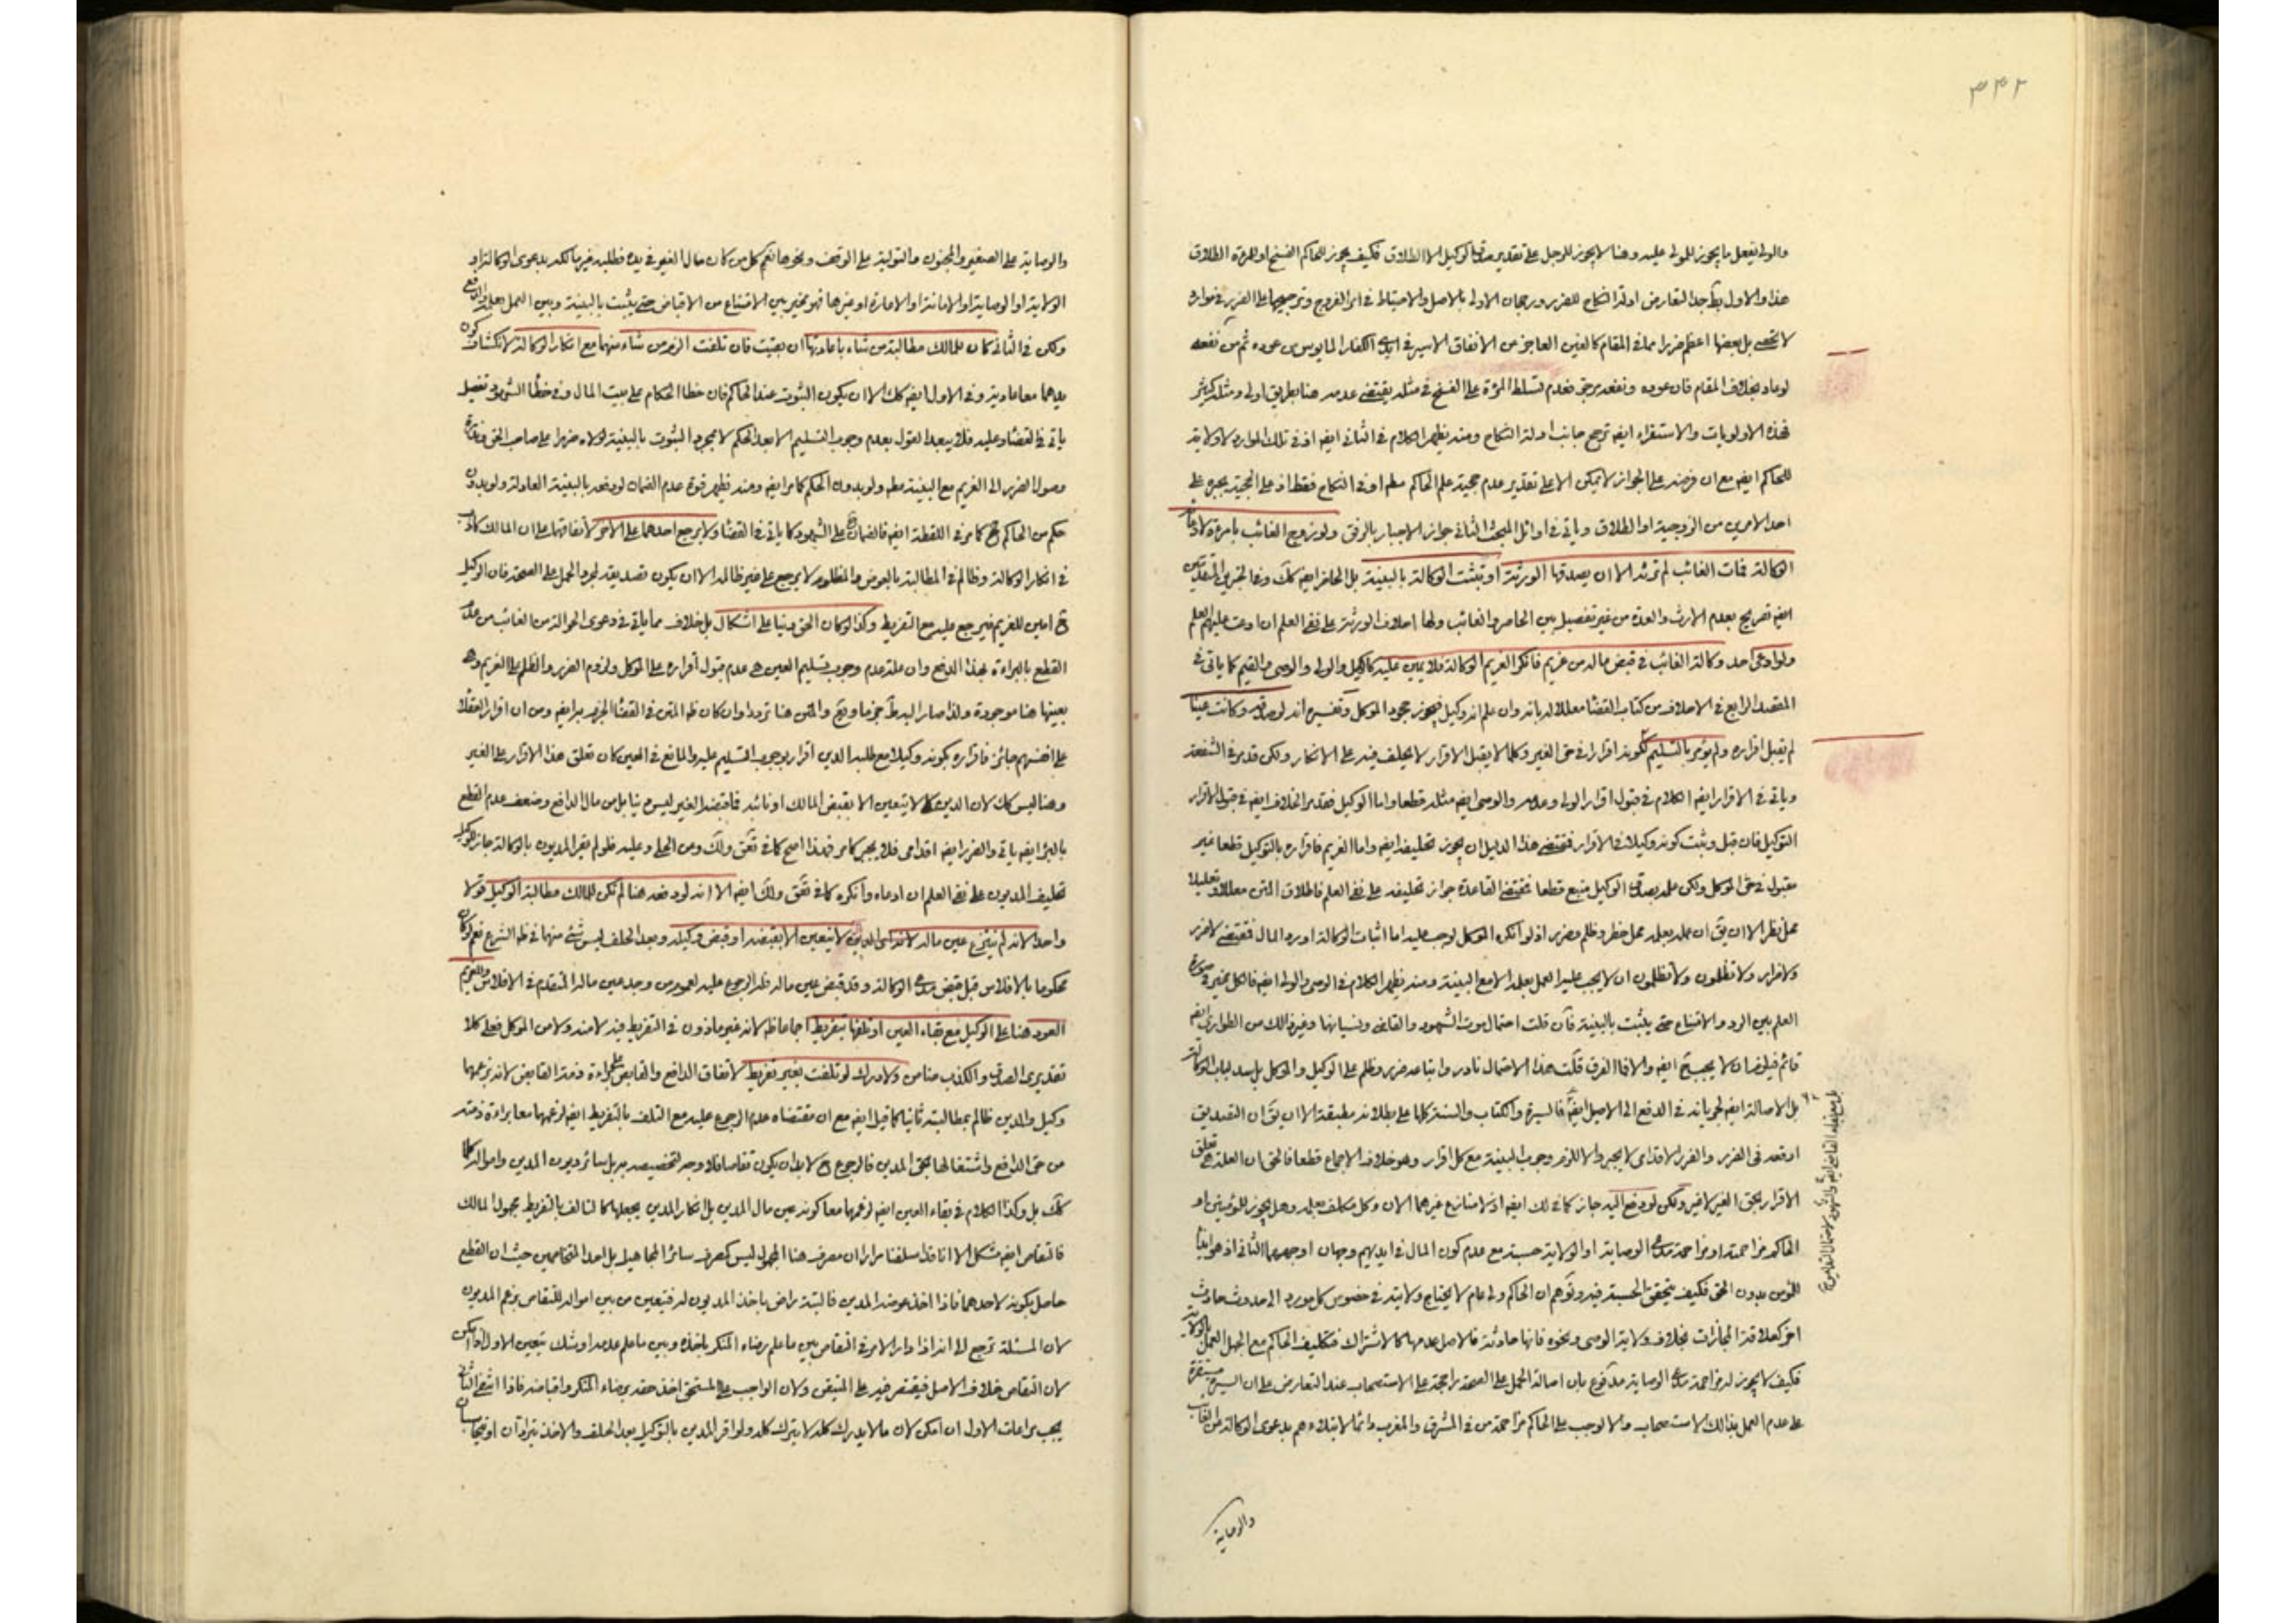 ٣٣٢
والولي يفعل ما يجوز للمولى عليه وهنا لا يجوز للرجل على تقدير صدق الوكيل الا الطلاق فكيف يجوز للحاكم الفسخ او للمرئة الطلاق
هذا والاول بقاء جدا لتعارض ادلة النكاح للضرر ورجحان الاولى بالاصل والاحتياط في امر الفروج وترجيحها على الضرر في موارد
لا تحصى بل بعضها اعظم ضررا مما في المقام كالعنين العاجز عن الانفاق الاسير في ايدي الكفار المايوس من عوده ثم من نفعه
لو عاد بخلاف المقام فان عوده ونفعه يرجى فعدم تسلط المرئة على الفسخ في مثله يقتضي عدمه هنا بطريق اولى ومثله كثير
فهذه الاولويات والاستقراء ايضه ترجح جانب ادلة النكاح ومنه يظهر الكلام في الثاني ايضه اذ في تلك الموارد لا ولاية
للحاكم ايضه مع ان فرضه على الجواز لا يمكن الا على تقدير عدم حجية علم الحاكم مطه او في النكاح فقط اذ على الحجية يجبره على
احد الامرين من الزوجية او الطلاق وياتي في اوائل المبحث الثاني جواز الاجبار بالرفق ولو زوج الغائب بامرءة لادعاء
الوكالة فمات الغائب لم ترثه الا ان يصدقها الورثة او تثبت الوكالة بالبينة بل الحاضر ايضه كك وفي الخبرين المتقدمين
ايضه تصريح بعدم الارث والعدة من غير تفصيل بين الحاضر والغائب ولها احلاف الورثة على نفي العلم ان ادعت عليهم العلم
ولو ادعى احد وكالة الغائب في قبض ماله من غريم فانكر الغريم الوكالة فلا يمين عليه كالوكيل والولي والوصي والقيم كما ياتي في
المقصد الرابع في الاحلاف من كتاب القضا معللا له بانه وان علم انه وكيل فيجوز جحود الموكل وتفسيره انه لو صدقه وكانت عينا
لم يقبل اقراره ولم يؤمر بالتسليم لكونه اقرارا في حق الغير وكلما لا يقبل الاقرار لا يحلف فيه على الانكار ولكن قد مر في الشفعة
وياتي في الاقرار ايضه الكلام في قبول اقرار الولي وعدمه والوصي ايضه مثله قطعا واما الوكيل فقد مر الخلاف ايضه في قبول الاقرار
التوكيل فان قبل وثبت كونه وكيلا في الاقرار فمقتضى هذا الدليل ان يجوز تحليفه ايضه واما الغريم فاقراره بالتوكيل قطعا غير
مقبول في حق الموكل ولكن علمه بصدق الوكيل متبع قطعا فمقتضى القاعدة جواز تحليفه على نفي العلم فاطلاق المتن معللا وتعليلا
محل نظر الا ان يق ان عمله بعلمه محل خطر وظلم وضرر اذ لو انكره الموكل لوجب عليه اما اثبات الوكالة او رد المال فمقتضى لا ضرر
ولا ضرار ولا تظلمون ولا تظلمون ان لا يجب عليه العمل بعلمه الا مع البينة ومنه يظهر الكلام في الوصي والولي ايضه فالكل مخير في صورة
العلم بين الرد والامتناع حتى يثبت بالبينة فان قلت احتمال موت الشهود والقاضي ونسيانها وغير ذالك من الطوارئ ايضه
قائم فيلزم ان لا يجب ح ايضه والا فما الفرق قلت هذا الاحتمال نادر واتباعه ضرر وظلم على الوكيل والموكل بل سد لباب الوكالة
بل الاصالة ايضه لجريانه في الدفع الى الاصيل ايضه فالسيرة والكتاب والسنة كلها على بطلانه مطبقة الا ان يق ان التصديق
اوقعه في الضرر والضرر الاقدامي لا يجبر والا للزم وجوب البينة مع كل اقرار وهو خلاف الاجماع قطعا فالحق ان العلة هي تعلق
الاقرار بحق الغير لا غير ولكن لو دفع اليه جاز كما في لك ايضه اذ لا منازع غيرهما الان وكل مكلف بعلمه وهل يجوز للمؤمنين او
الحاكم مزاحمته او مزاحمة مدعي الوصاية او الولاية حسبة مع عدم كون المال في ايديهم وجهان اوجههما الثاني اذ هو ايضا
للمؤمن بدون الحق فكيف يتحقق الحسبة فيه وتوهم ان الحاكم ولي عام لا يحتاج ولايته في خصوص كل مورد الى حدوث حادث
اخر كعلاقة المجازات بخلاف ولاية الوصي ونحوه فانها حادثة فالاصل عدمها كالاشتراك فتكليف الحاكم مع الجهل العمل بالولاية
فكيف لا يجوز له مزاحمة مدعي الوصاية مدفوع بان اصالة الحمل على الصحة راجحة على الاستصحاب عند التعارض على ان السيرة مستقرة
على عدم العمل بذالك الاستصحاب والا لوجب على الحاكم مزاحمة من في المشرق والمغرب دائما لابتلاءهم بدعوى الوكالة على الغائب
والوصاية
والوصاية على الصغير والمجنون والتولية على الوقف ونحوها نعم كل من كان مال الغير في يده فطلبه غير مالكه بدعوى الوكالة او
الولاية او الوصاية او الامانة او الامارة او غيرها فهو مخير بين الامتناع من الاقباض حتى يثبت بالبينة وبين العمل بعلمه والدفع
ولكن في الثاني كان للمالك مطالبة من شاء باعادتها ان بقيت فان تلفت الزم من شاء منهما مع انكار الوكالة لانكشاف كون
يدهما معا عادية وفي الاول ايضه كك الا ان يكون الثبوت عند الحاكم فان خطا الحكام على بيت المال وفي خطا الشهود تفصيل
ياتي في القضا وعليه فلا يبعد القول بعدم وجوب التسليم الا بعد الحكم لا بمجرد الثبوت بالبينة
وصول الضرر الى الغريم مع البينة مطه ولو بدون الحكم كما مر ايضه ومنه تظهر قوة عدم الضمان لو دفعه بالبينة العادلة ولو بدون
حكم من الحاكم ح كما مر في اللقطة ايضه فالضمان ح على الشهود كما ياتي في القضا ولا يرجع احدهما على الاخر لاتفاقهما على ان المالك كاذب
في انكار الوكالة وظالم في المطالبة بالعوض والمظلوم لا يرجع على غير ظالمه الا ان يكون تصديقه لمجرد الحمل على الصحة فان الوكيل
ح امين للغريم فيرجع عليه مع التفريط وكذا لو كان الحق دينا على اشكال بل خلاف مما ياتي في دعوى الحوالة من الغائب من عدم
القطع بالبراءة بهذا الدفع وان علة عدم وجوب تسليم العين هي عدم قبول اقراره على الموكل ولزوم الضرر والظلم على الغريم وهي
بعينها هنا موجودة ولذا صار اليه ط جزما ويع والمتن هنا ترددا وان كان ظه المتن في القضا الجزم به ايضه ومن ان اقرار العقلا
على انفسهم جائز فاقراره بكونه وكيلا مع طلبه الدين اقرار بوجوب التسليم عليه والمانع في العين كان تعلق هذا الاقرار على الغير
وهنا ليس كك لان الدين كلا لا يتعين الا بقبض المالك او نائبه فما قبضه الغير ليس دينا بل من مال الدافع وضعف عدم القطع
بالبرائة ايضه ياتي والضرر ايضه اقدامي فلا يجبر كما مر فهذا اصح كما في تعق ولك ومن الحلي وعليه فلو لم يقر المديون بالوكالة جاز للوكيل
تحليف المديون على نفي العلم ان ادعاه وانكره كما في تعق ولك ايضه الا انه لو دفعه هنا لم تكن للمالك مطالبة الوكيل قولا
واحدا لانه لم ينتزع عين ماله لانه اي الدين لا يتعين الا بقبضه او قبض وكيله وبعد الحلف ليس شئ منهما في ظه الشرع نعم لو كان
محكوما بالافلاس قبل قبض مدعي الوكالة وقد قبض عين ماله فله الرجوع عليه لعموم من وجد عين ماله المتقدم في الافلاس وللغريم
العود هنا على الوكيل مع بقاء العين او تلفها بتفريط اجماعا ظه لانه غير ماذون في التفريط فيه لا منه ولا من الموكل فعلى كلا
تقديري الصدق والكذب ضامن ولا درك لو تلفت بغير تفريط لاتفاق الدافع والقابض على براءة ذمة القابض لانه بزعمهما
وكيل والدين ظالم بمطالبته ثانيا كما قيل ايضه مع ان مقتضاه عدم الرجوع عليه مع التلف بالتفريط ايضه لزعمهما معا براءة ذمته
من حق الدافع واشتغالها بحق المدين فالرجوع ح لابد ان يكون تقاصا فلا وجه لتخصيصه به بل سائر ديون المدين وامواله كلها
كك بل وكذا الكلام في بقاء العين ايضه لزعمهما معا كونه عين مال المدين بل انكار المدين يجعلها كالتالف بالتفريط مجهول المالك
فالتقاص ايضه مشكل الا انا قد اسلفنا مرارا ان مصرف هنا المجهول ليس كمصرف سائر المجاهيل بل احد المتخاصمين حيث ان القطع
حاصل بكونه لاحدهما فاذا اخذ عوضه المدين فالبتة راض باخذ المديون له فتعين من بين امواله للتقاص بزعم المديون
لان المسئلة ترجع الى انه اذا دار الامر في التقاص بين ما علم رضاء المنكر باخذه وبين ما علم عدمه او شك تعين الاول اذا امكن
لان التقاص خلاف الاصل فيقتصر فيه على المتيقن ولان الواجب على المستحق اخذ حقه برضاء المنكر واقباضه فاذا انتفى الثاني
يجب مراعات الاول ان امكن لان ما لا يدرك كله لا يترك كله ولو اقر المدين بالتوكيل بعد الحلف والاخذ يترادان